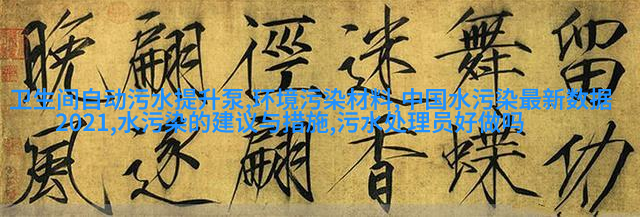 卫生间自动污水提升泵,环境污染材料,中国水污染最新数据
2021,水污染的建议与措施,污水处理员好做吗
留功
舞蝶
迷香
徑翩
翩逐
晚風